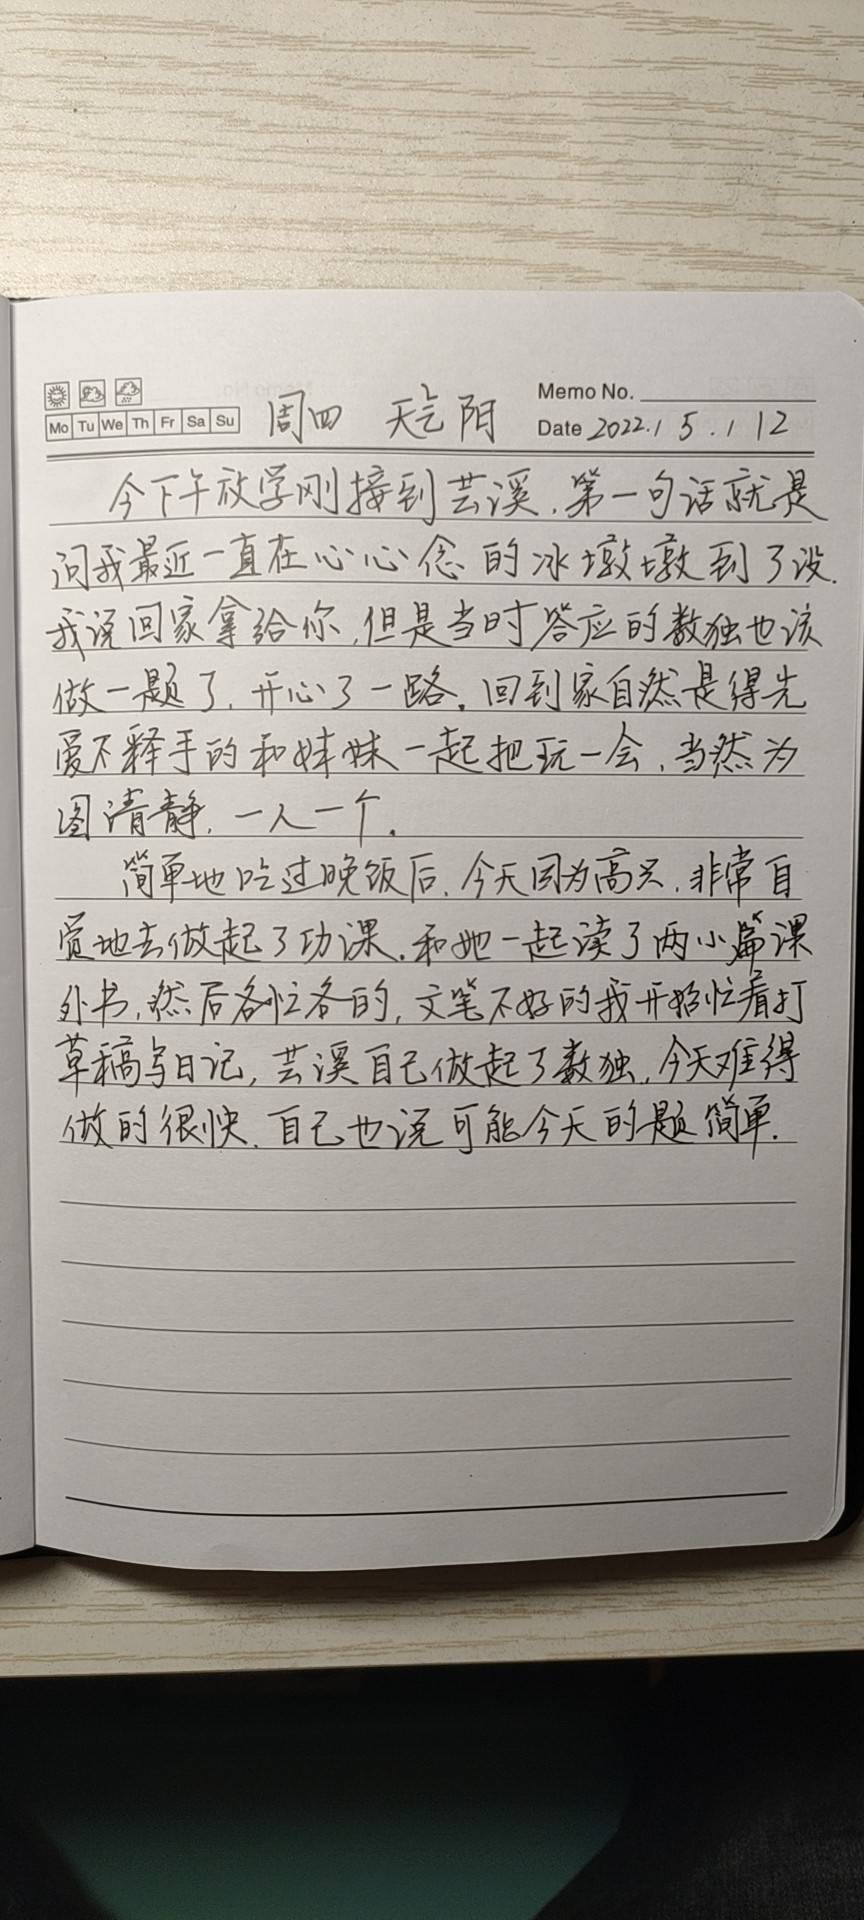 Memo No.
Mo Tu We Th Fr Sa Su 周四 天气阳 Date 2022.1 5.1 12
今下午放学刚接到芸溪,第一句话就是
问我最近一直在心心念的冰墩墩到了没.
我说回家拿给你,但是当时答应的数独也该
做一题了,开心了一路.回到家自然是得先
爱不释手的和妹妹一起把玩一会,当然为
图清静,一人一个.
简单地吃过晚饭后,今天因为高兴,非常自
觉地去做起了功课.和她一起读了两小篇课
外书,然后各忙各的,文笔不好的我开始忙着打
草稿写日记,芸溪自己做起了数独,今天难得
做的很快,自己也说可能今天的题简单.